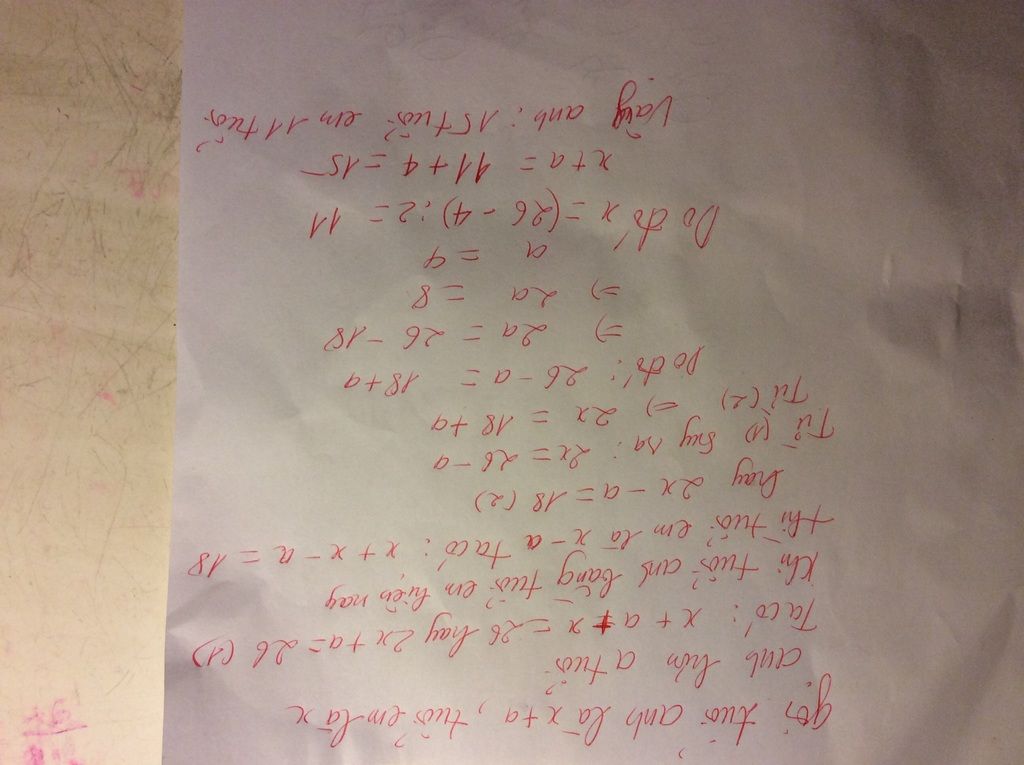 gọi tuổi anh là x+a, tuổi em là x
anh hơn a tuổi
Ta có: x + a + x = 26 hay 2x + a = 26 (1)
Khi tuổi anh bằng tuổi em hiện nay
thì tuổi em là x - a ta có: x + x - a = 18
hay 2x - a = 18 (2)
Từ (1) suy ra: 2x = 26 - a
Từ (2) => 2x = 18 + a
Do đó: 26 - a = 18 + a
=> 2a = 26 - 18
=> 2a = 8
a = 4
Do đó x = (26 - 4) : 2 = 11
x + a = 11 + 4 = 15
Vậy anh: 15 tuổi em 11 tuổi